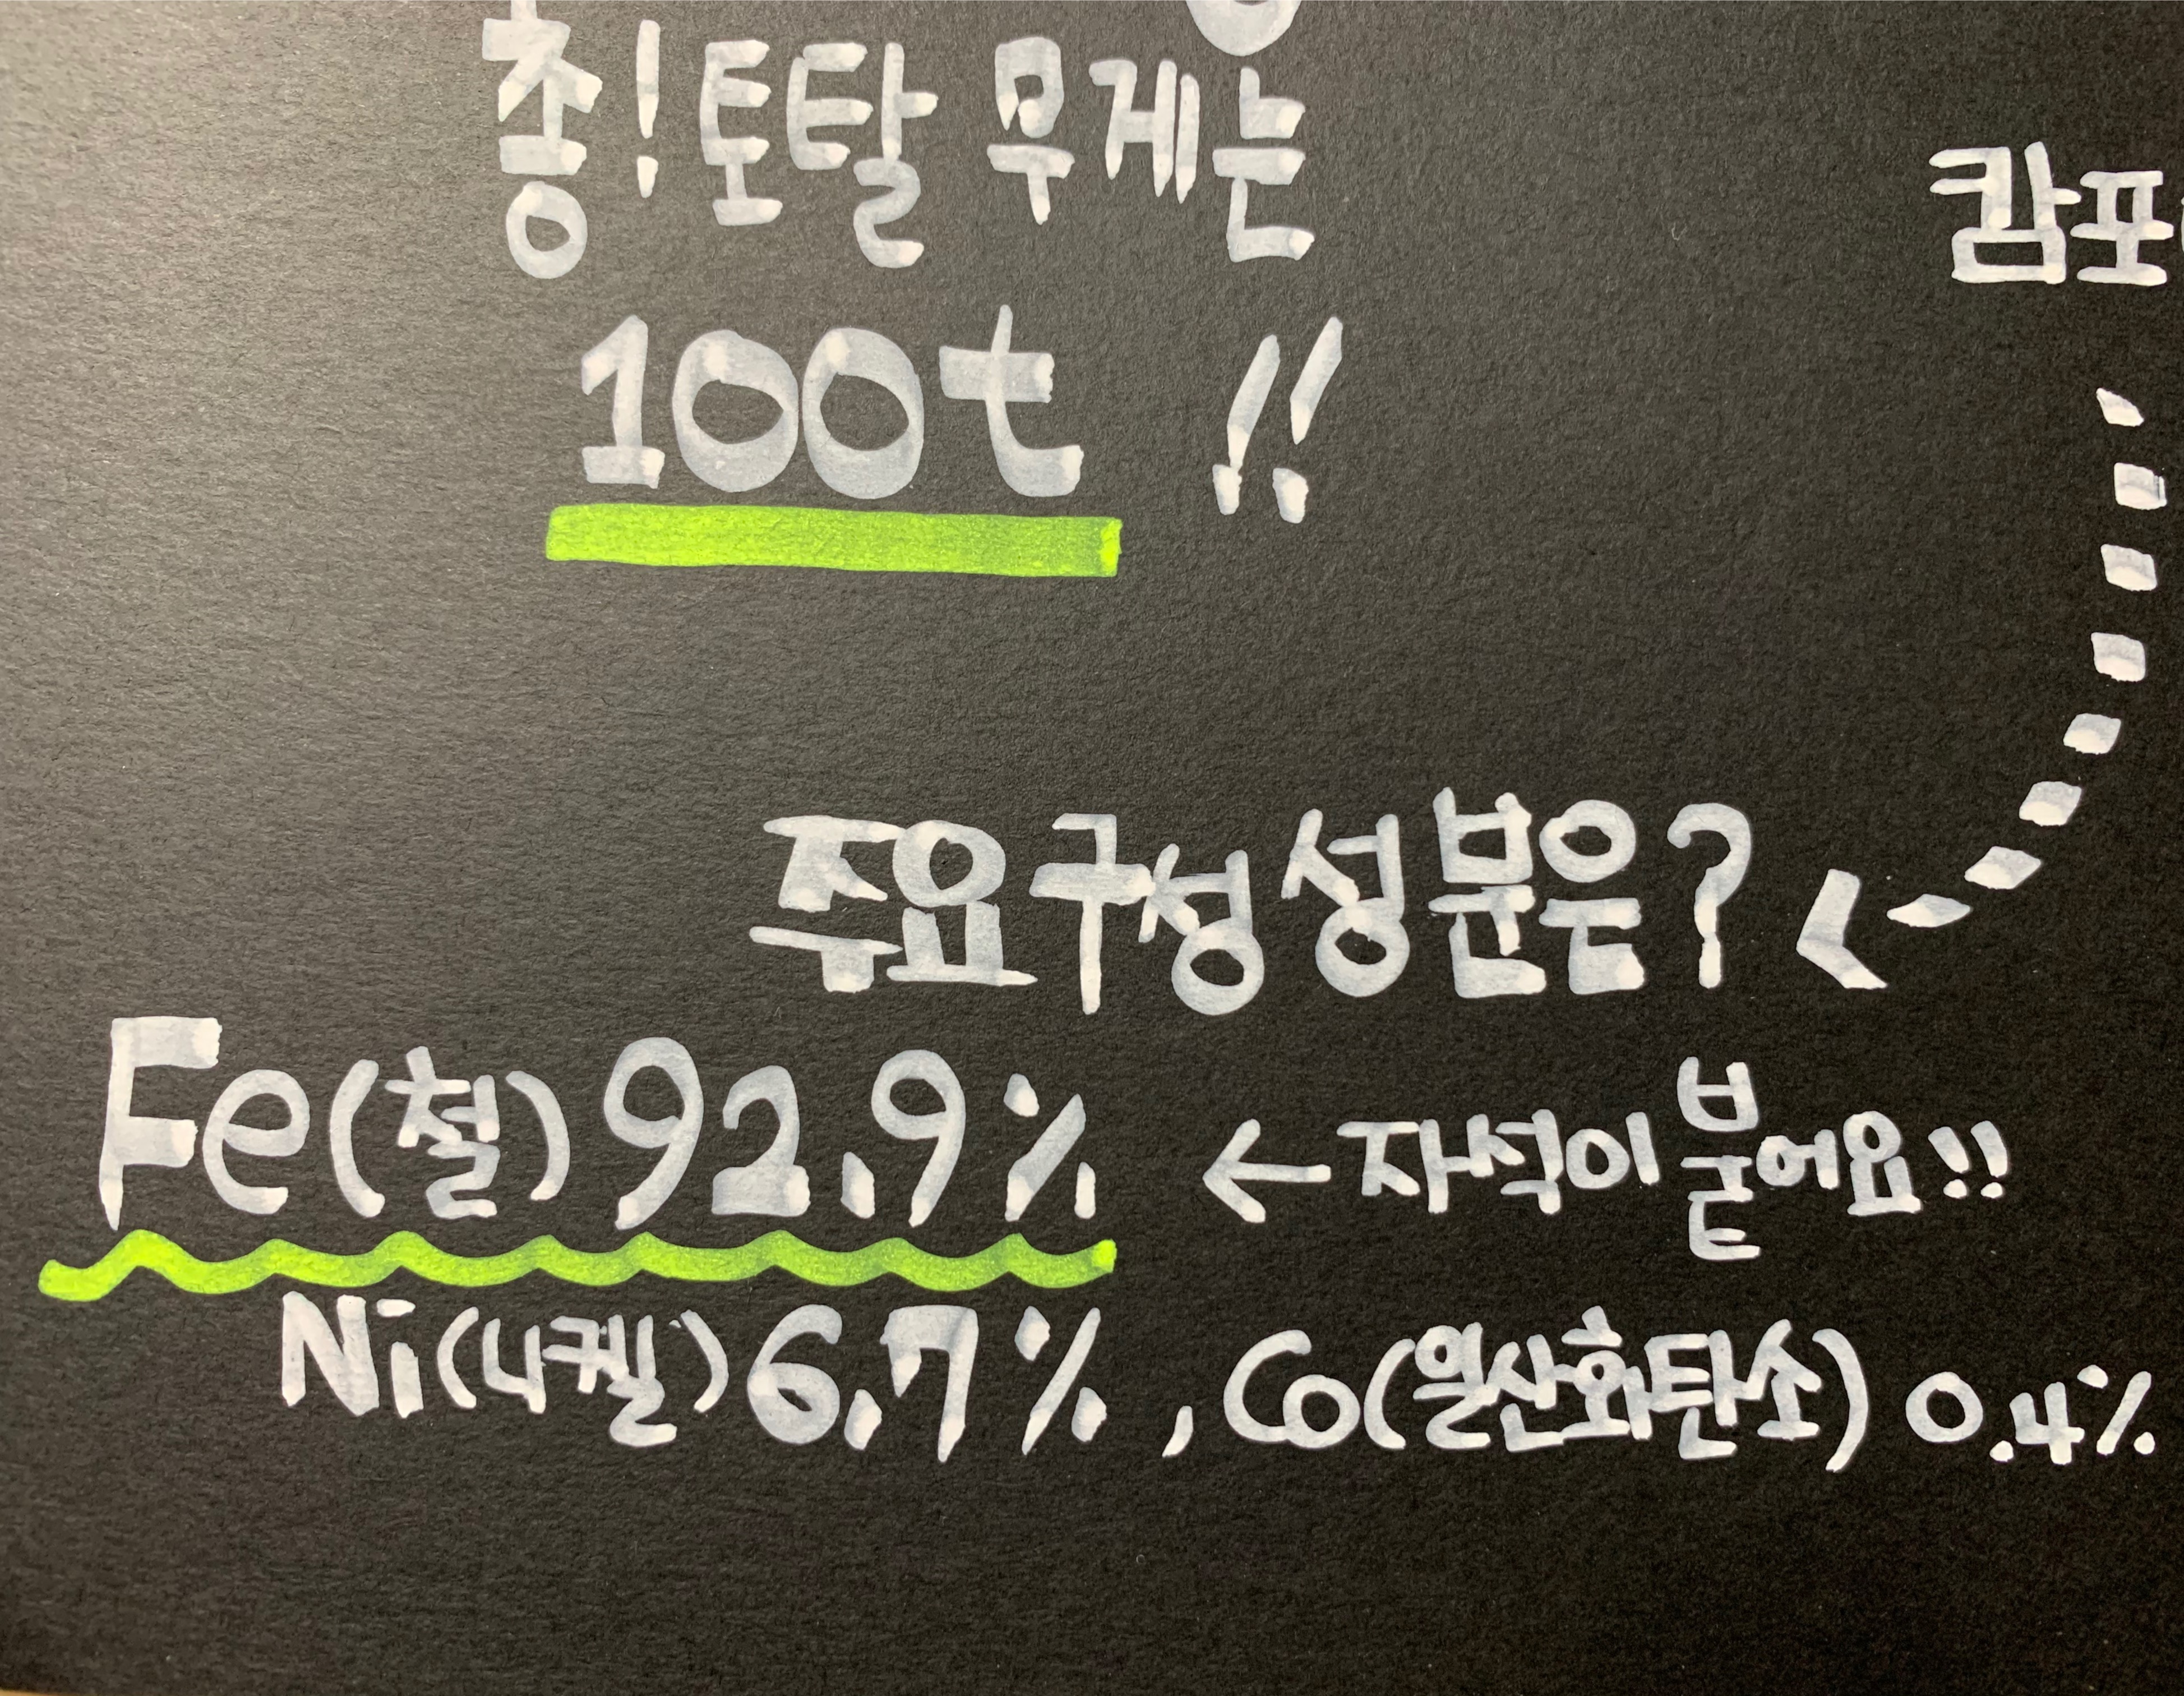 총! 토탈 무게는
100t !!
캄포
주요 구성 성분은?
Fe(철) 92.9% ← 자석이 붙어요!!
Ni(니켈) 6.7%, Co(일산화탄소) 0.4%